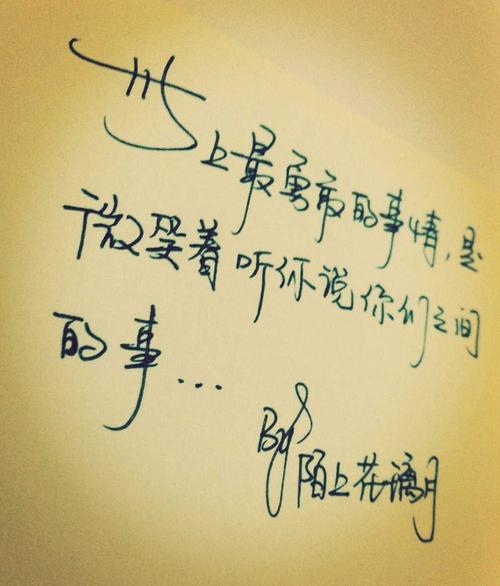 世上最勇敢的事情,是
微笑着听你说你们之间
的事...
By 陌上花璃月